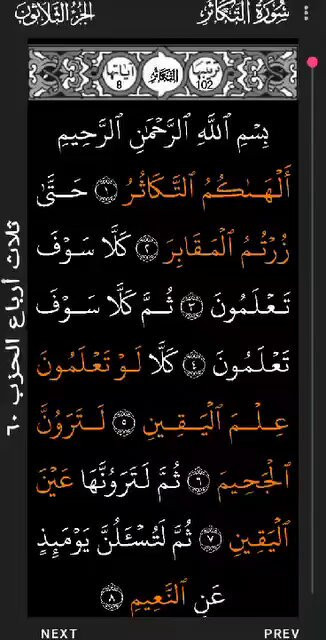 سُورَةُ التَّكَاثُرِ
الجُزْءُ الثَّلَاثُونَ
ترتيبها 102 التَّكَاثُر آياتها 8
بِسْمِ ٱللَّهِ ٱلرَّحْمَٰنِ ٱلرَّحِيمِ
أَلْهَىٰكُمُ ٱلتَّكَاثُرُ ١ حَتَّىٰ
زُرْتُمُ ٱلْمَقَابِرَ ٢ كَلَّا سَوْفَ
تَعْلَمُونَ ٣ ثُمَّ كَلَّا سَوْفَ
تَعْلَمُونَ ٤ كَلَّا لَوْ تَعْلَمُونَ
عِلْمَ ٱلْيَقِينِ ٥ لَتَرَوُنَّ
ٱلْجَحِيمَ ٦ ثُمَّ لَتَرَوُنَّهَا عَيْنَ
ٱلْيَقِينِ ٧ ثُمَّ لَتُسْـَٔلُنَّ يَوْمَئِذٍ
عَنِ ٱلنَّعِيمِ ٨
ثلاث أرباع الحزب ٦٠
NEXT
PREV